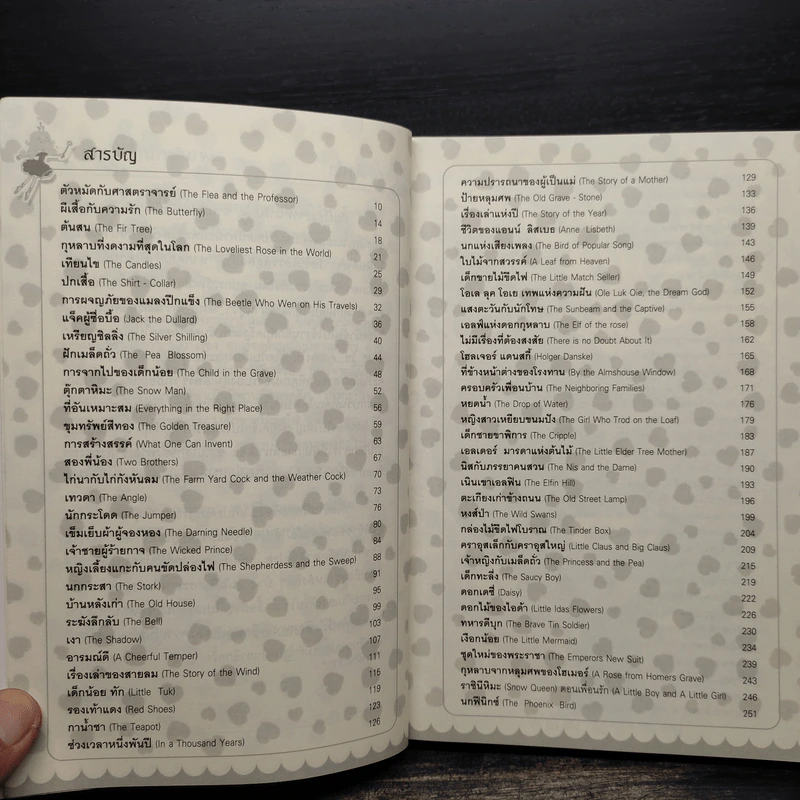 สารบัญ
ตัวหมัดกับศาสตราจารย์ (The Flea and the Professor) 10
ผีเสื้อกับความรัก (The Butterfly) 14
ต้นสน (The Fir Tree) 18
กุหลาบที่งดงามที่สุดในโลก (The Loveliest Rose in the World) 21
เทียนไข (The Candles) 25
ปกเสื้อ (The Shirt - Collar) 29
การผจญภัยของแมลงปีกแข็ง (The Beetle Who Wen on His Travels) 32
แจ็คผู้ซื่อบื้อ (Jack the Dullard) 36
เหรียญชิลลิ่ง (The Silver Shilling) 40
ฝักเมล็ดถั่ว (The Pea Blossom) 44
การจากไปของเด็กน้อย (The Child in the Grave) 48
ตุ๊กตาหิมะ (The Snow Man) 52
ที่อันเหมาะสม (Everything in the Right Place) 56
ขุมทรัพย์สีทอง (The Golden Treasure) 59
การสร้างสรรค์ (What One Can Invent) 63
สองพี่น้อง (Two Brothers) 67
ไก่นากับไก่กังหันลม (The Farm Yard Cock and the Weather Cock) 70
เทวดา (The Angle) 73
นักกระโดด (The Jumper) 76
เข็มเย็บผ้าผู้จองหอง (The Darning Needle) 80
เจ้าชายผู้ร้ายกาจ (The Wicked Prince) 84
หญิงเลี้ยงแกะกับคนขัดปล่องไฟ (The Shepherdess and the Sweep) 88
นกกระสา (The Stork) 91
บ้านหลังเก่า (The Old House) 95
ระฆังลึกลับ (The Bell) 99
เงา (The Shadow) 103
อารมณ์ดี (A Cheerful Temper) 107
เรื่องเล่าของสายลม (The Story of the Wind) 111
เด็กน้อย ทัก (Little Tuk) 115
รองเท้าแดง (Red Shoes) 119
กาน้ำชา (The Teapot) 123
ช่วงเวลาหนึ่งพันปี (In a Thousand Years) 126
ความปรารถนาของผู้เป็นแม่ (The Story of a Mother) 129
ป้ายหลุมศพ (The Old Grave - Stone) 133
เรื่องเล่าแห่งปี (The Story of the Year) 136
ชีวิตของแอนน์ ลิสเบธ (Anne Lisbeth) 139
นกแห่งเสียงเพลง (The Bird of Popular Song) 143
ใบไม้จากสวรรค์ (A Leaf from Heaven) 146
เด็กชายไม้ขีดไฟ (The Little Match Seller) 149
โอเล ลุค โอเย เทพแห่งความฝัน (Ole Luk Oie, the Dream God) 152
แสงตะวันกับนักโทษ (The Sunbeam and the Captive) 155
เอลฟ์แห่งดอกกุหลาบ (The Elf of the rose) 158
ไม่มีเรื่องที่ต้องสงสัย (There is no Doubt About It) 162
โฮลเจอร์ แดนสกี้ (Holger Danske) 165
ที่ข้างหน้าต่างของโรงทาน (By the Almshouse Window) 168
ครอบครัวเพื่อนบ้าน (The Neighboring Families) 171
หยดน้ำ (The Drop of Water) 176
หญิงสาวเหยียบขนมปัง (The Girl Who Trod on the Loaf) 179
เด็กชายขาพิการ (The Cripple) 183
เอลเดอร์ มารดาแห่งต้นไม้ (The Little Elder Tree Mother) 187
นิสกับภรรยาคนสวน (The Nis and the Dame) 190
เนินเขาเอลฟิน (The Elfin Hill) 193
ตะเกียงเก่าข้างถนน (The Old Street Lamp) 196
หงส์ป่า (The Wild Swans) 199
กล่องไม้ขีดไฟโบราณ (The Tinder Box) 204
คราอุสเล็กกับคราอุสใหญ่ (Little Claus and Big Claus) 209
เจ้าหญิงกับเมล็ดถั่ว (The Princess and the Pea) 215
เด็กทะลึ่ง (The Saucy Boy) 219
ดอกเดซี่ (Daisy) 222
ดอกไม้ของไอด้า (Little Idas Flowers) 226
ทหารดีบุก (The Brave Tin Soldier) 230
เงือกน้อย (The Little Mermaid) 234
ชุดใหม่ของพระราชา (The Emperors New Suit) 239
กุหลาบจากหลุมศพของโฮเมอร์ (A Rose from Homers Grave) 243
ราชินีหิมะ (Snow Queen) ตอนเพื่อนรัก (A Little Boy and A Little Girl) 246
นกฟีนิกซ์ (The Phoenix Bird) 251